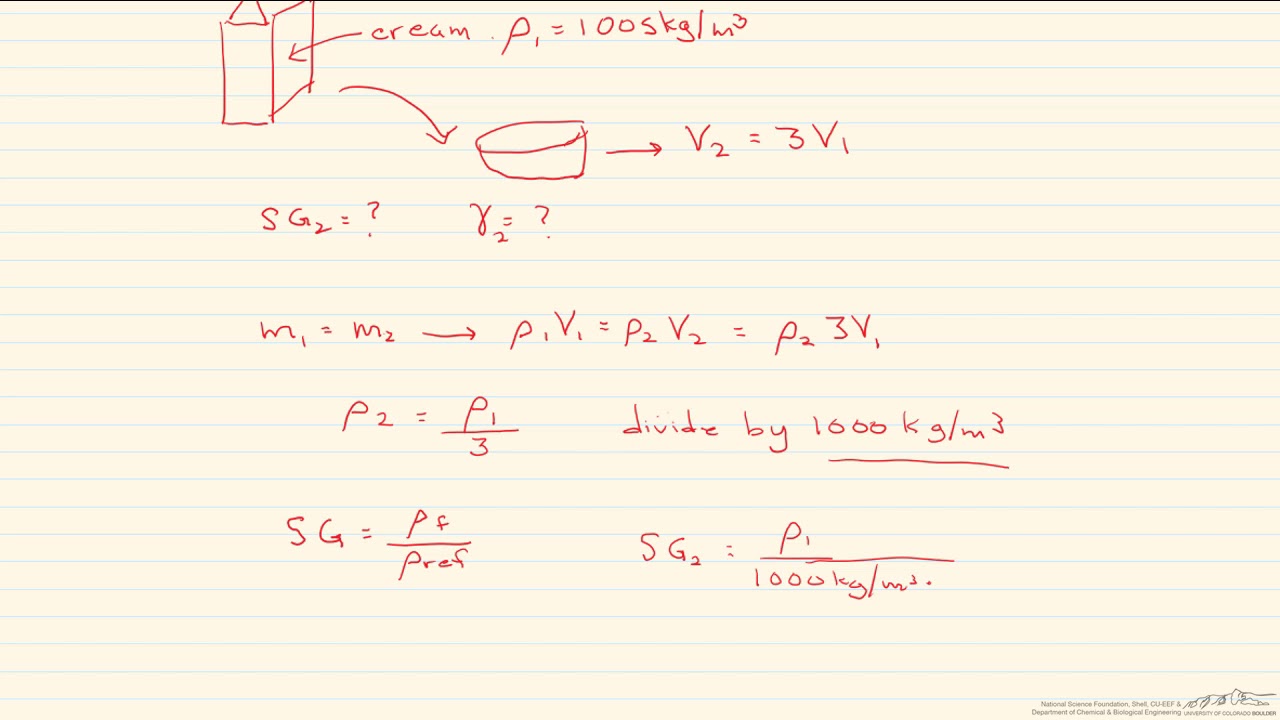 cream. ρ₁ = 1005 kg/m³
V₂ = 3V₁
SG₂ = ? γ₂ = ?
m₁ = m₂ → ρ₁V₁ = ρ₂V₂ = ρ₂ 3V₁
ρ2 = ρ₁/3 divide by 1000 kg/m³
SG = ρf/ρref SG₂ = ρ₁/1000 kg/m³.
National Science Foundation, Shell, CU-EEF &
Department of Chemical & Biological Engineering UNIVERSITY OF COLORADO BOULDER